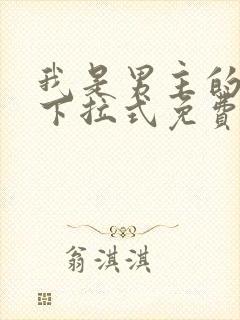 我是男主的
下拉式免费
翁淇淇